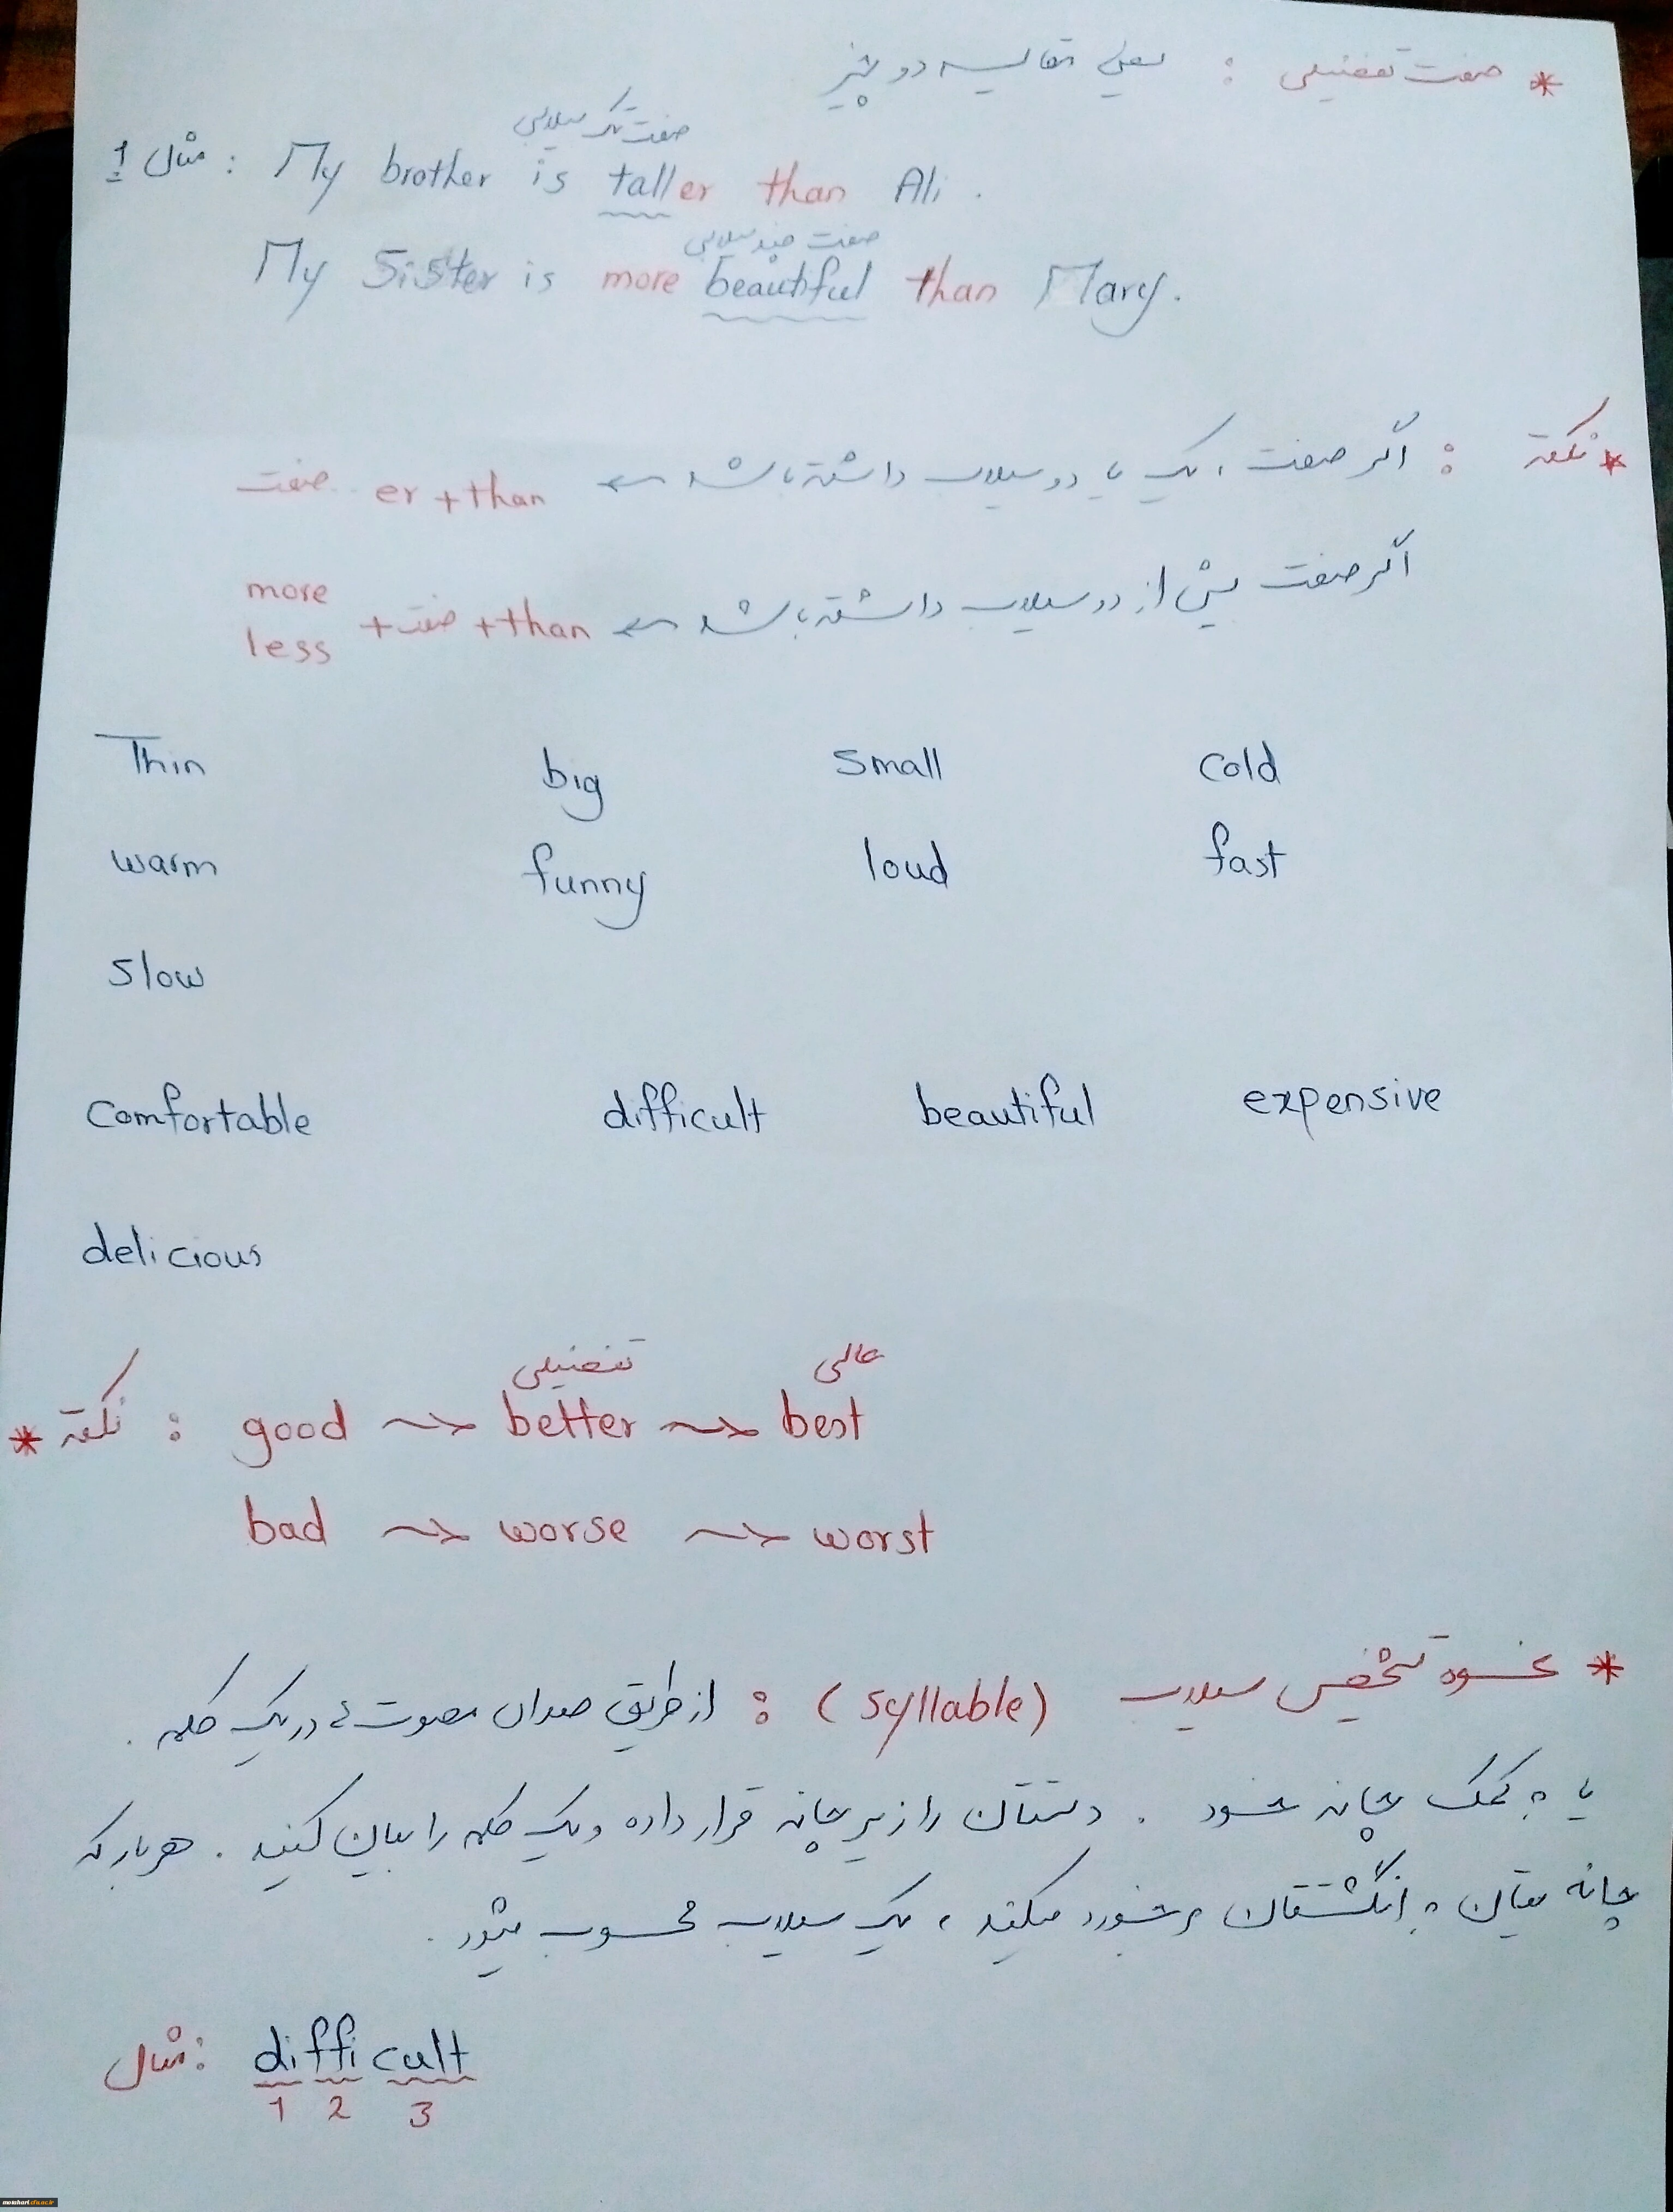 * صفت تفضیلی : یعنی مقایسه دو چیز
صفت تک سیلابی
مثال 1 : My brother is taller than Ali .
صفت چند سیلابی
My Sister is more beautiful than Mary.
* نکته : اگر صفت ، یک یا دو سیلاب داشته باشد ← صفت er + than
اگر صفت بیش از دو سیلاب داشته باشد ← more less + صفت + than
Thin big Small cold
warm funny loud fast
Slow
Comfortable difficult beautiful expensive
delicious
تفضیلی عالی
* نکته : good → better → best
bad → worse → worst
* نحوه تشخیص سیلاب (Syllable) : از طریق صدای مصوت ها در یک کلمه .
یا به کمک چانه خود . دستتان را زیر چانه قرار داده و یک کلمه را بیان کنید . هر بار که
چانه یتان به انگشتتان برخورد میکند ، یک سیلاب محسوب میشود .
مثال : difficult
1 2 3
motahari.cfu.ac.ir